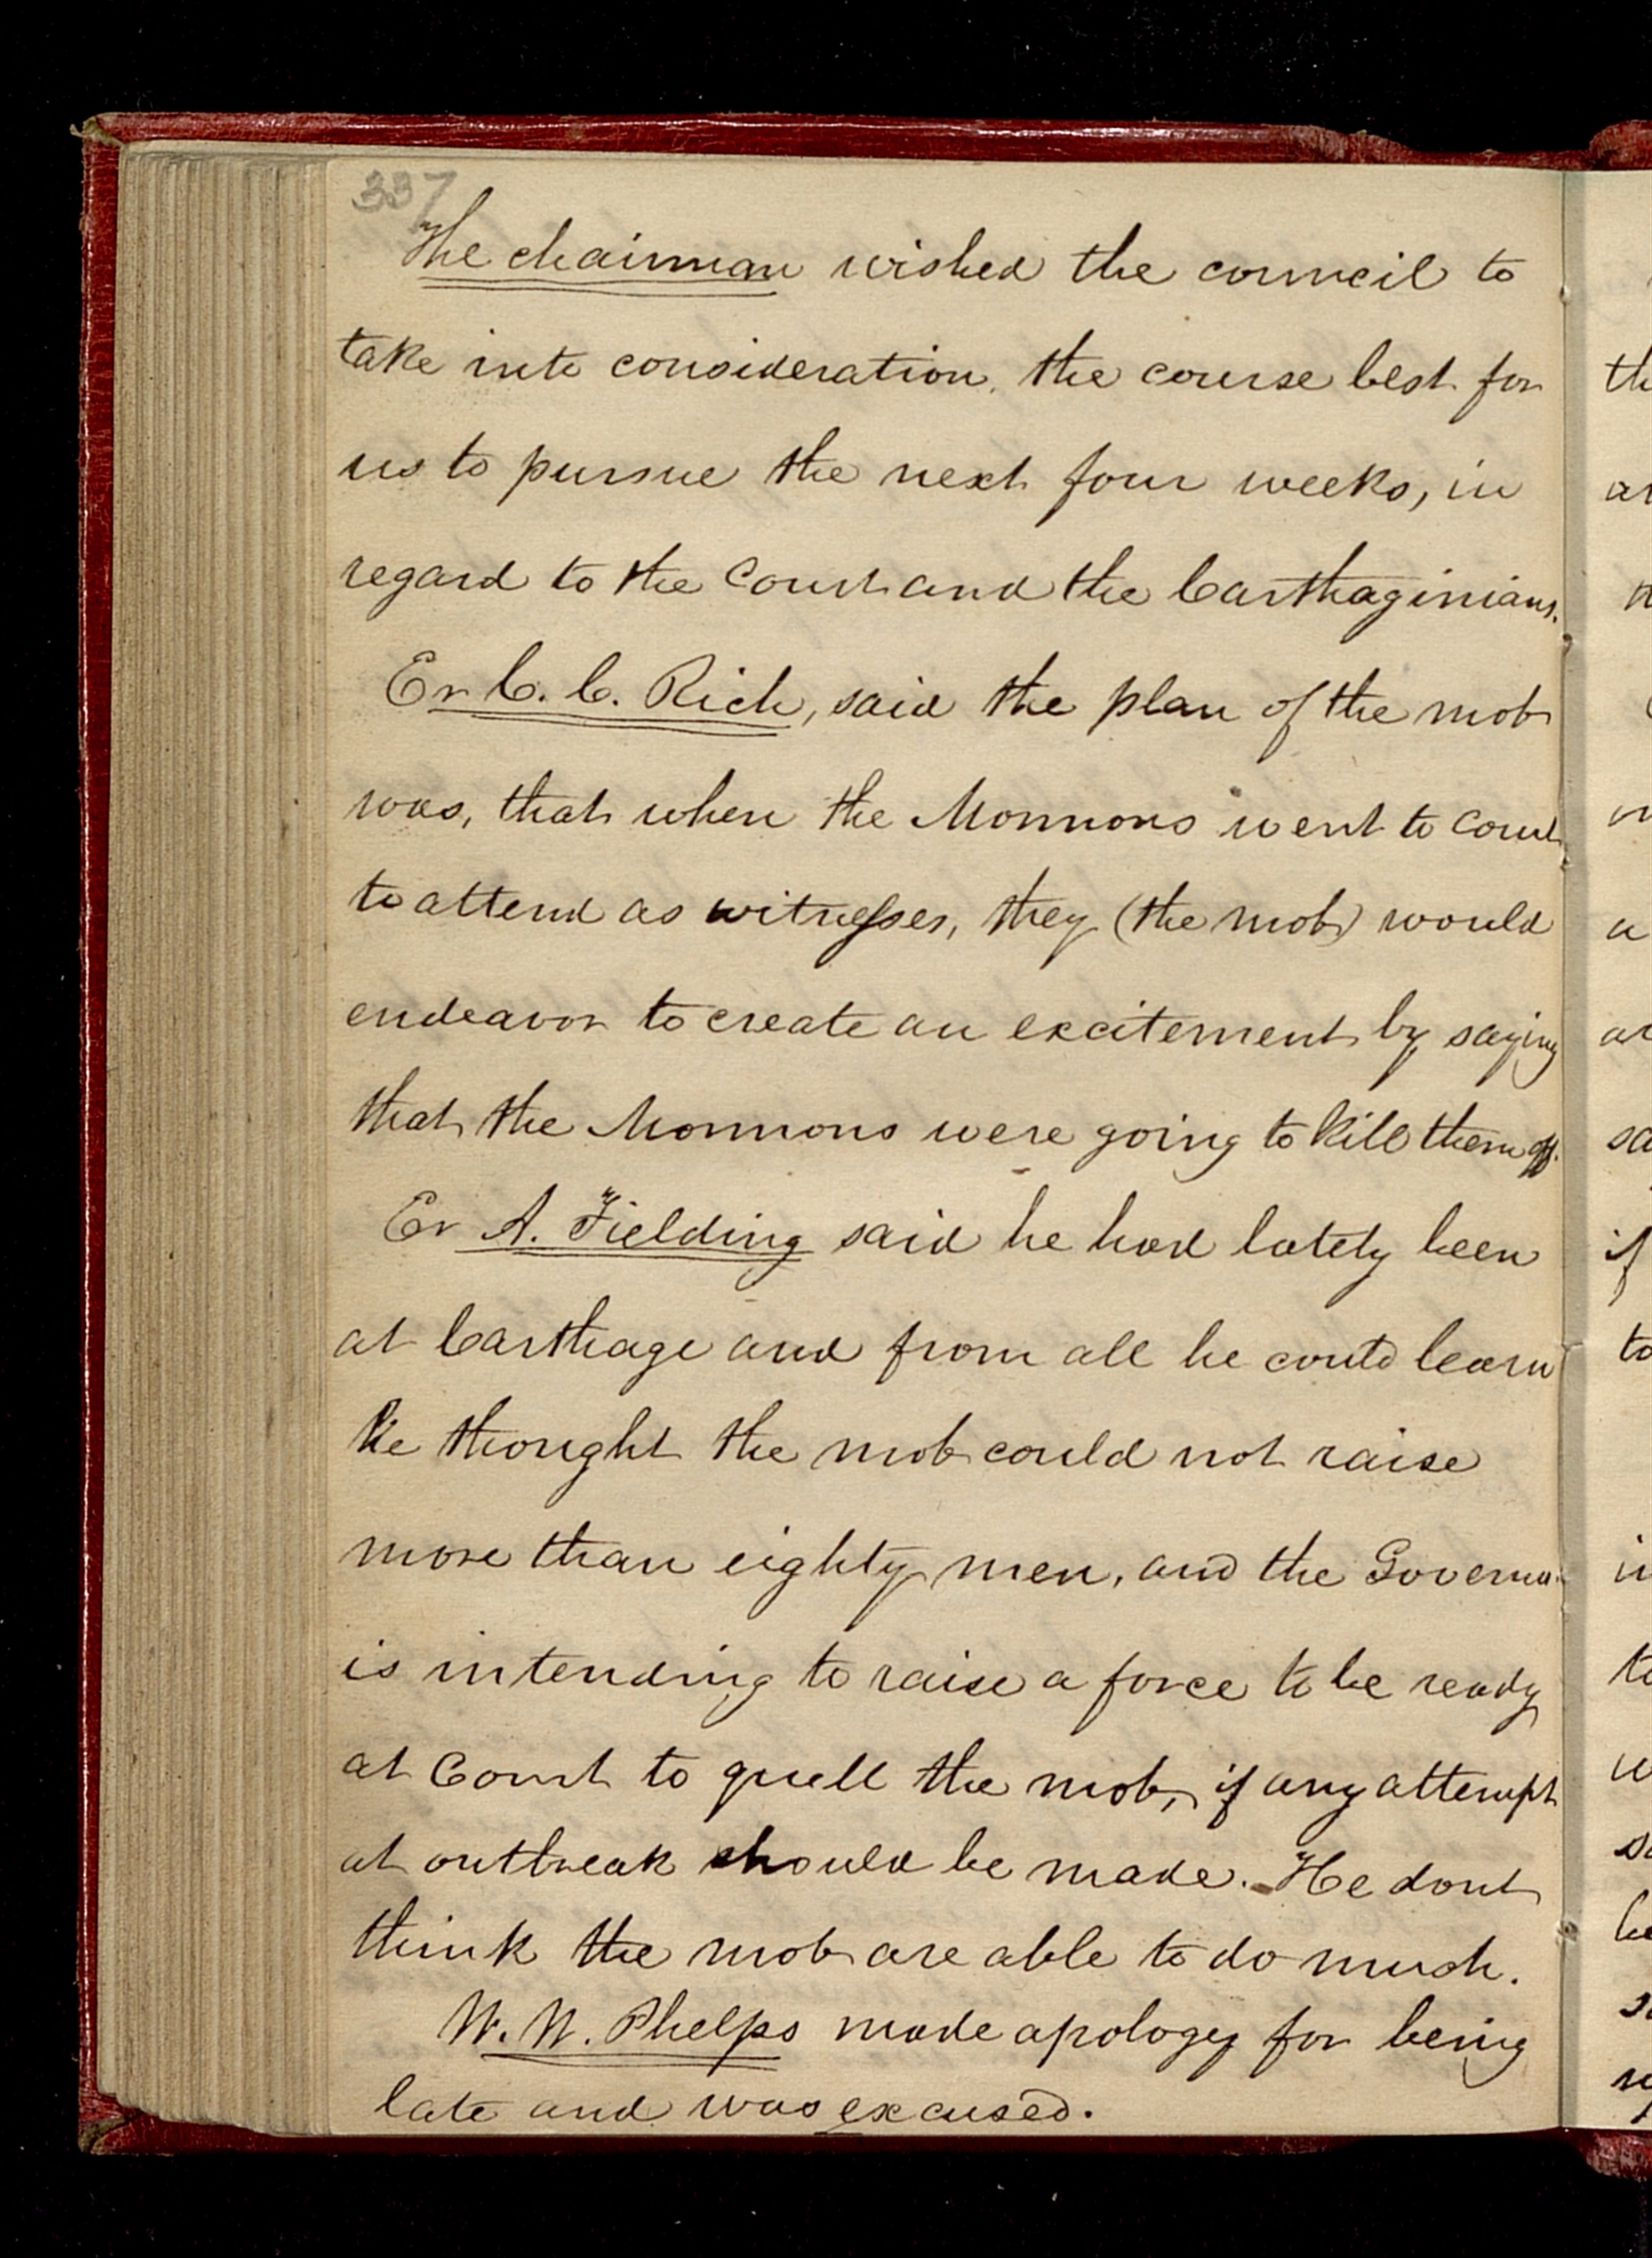 337
The chairman wished the council to
take into consideration, the course best for
us to pursue the next four weeks, in
regard to the Court and the Carthaginians.
Er C. C. Rich, said the plan of the mob
was, that when the Mormons went to Court
to attend as witnesses, they (the mob) would
endeavor to create an excitement by saying
that the Mormons were going to kill them off.
Er A. Fielding said he had lately been
at Carthage and from all he could learn
he thought the mob could not raise
more than eighty men, and the Governor
is intending to raise a force to be ready
at Court to quell the mob, if any attempt
at outbreak should be made. He dont
think the mob are able to do much.
W. W. Phelps made apology for being
late and was excused.